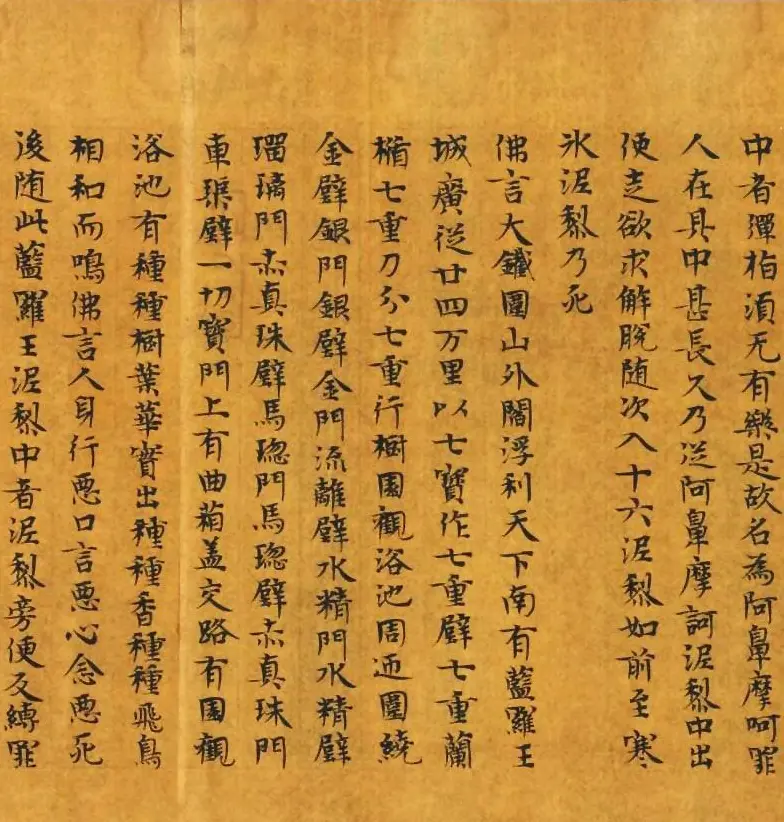 中者彈指湏无有樂是故名為阿鼻摩呵罪
人在其中甚長久乃從阿鼻摩訶泥犁中出
便走欲求解脫随次入十六泥犁如前至寒
氷泥犁乃死
佛言大鐵圍山外閻浮利天下南有藍羅王
城廣從廿四万里以七寶作七重壁七重蘭
楯七重刀分七重行樹園觀浴池周迊圍繞
金壁銀門銀壁金門流離壁水精門水精壁
瑠璃門赤真珠壁馬瑙門馬瑙壁赤真珠門
車璖壁一切寶門上有曲箱盖交路有園觀
浴池有種種樹葉華實出種種香種種飛鳥
相和而鳴佛言人身行惡口言惡心念惡死
後随此藍羅王泥犁中者泥犁旁便反縛罪